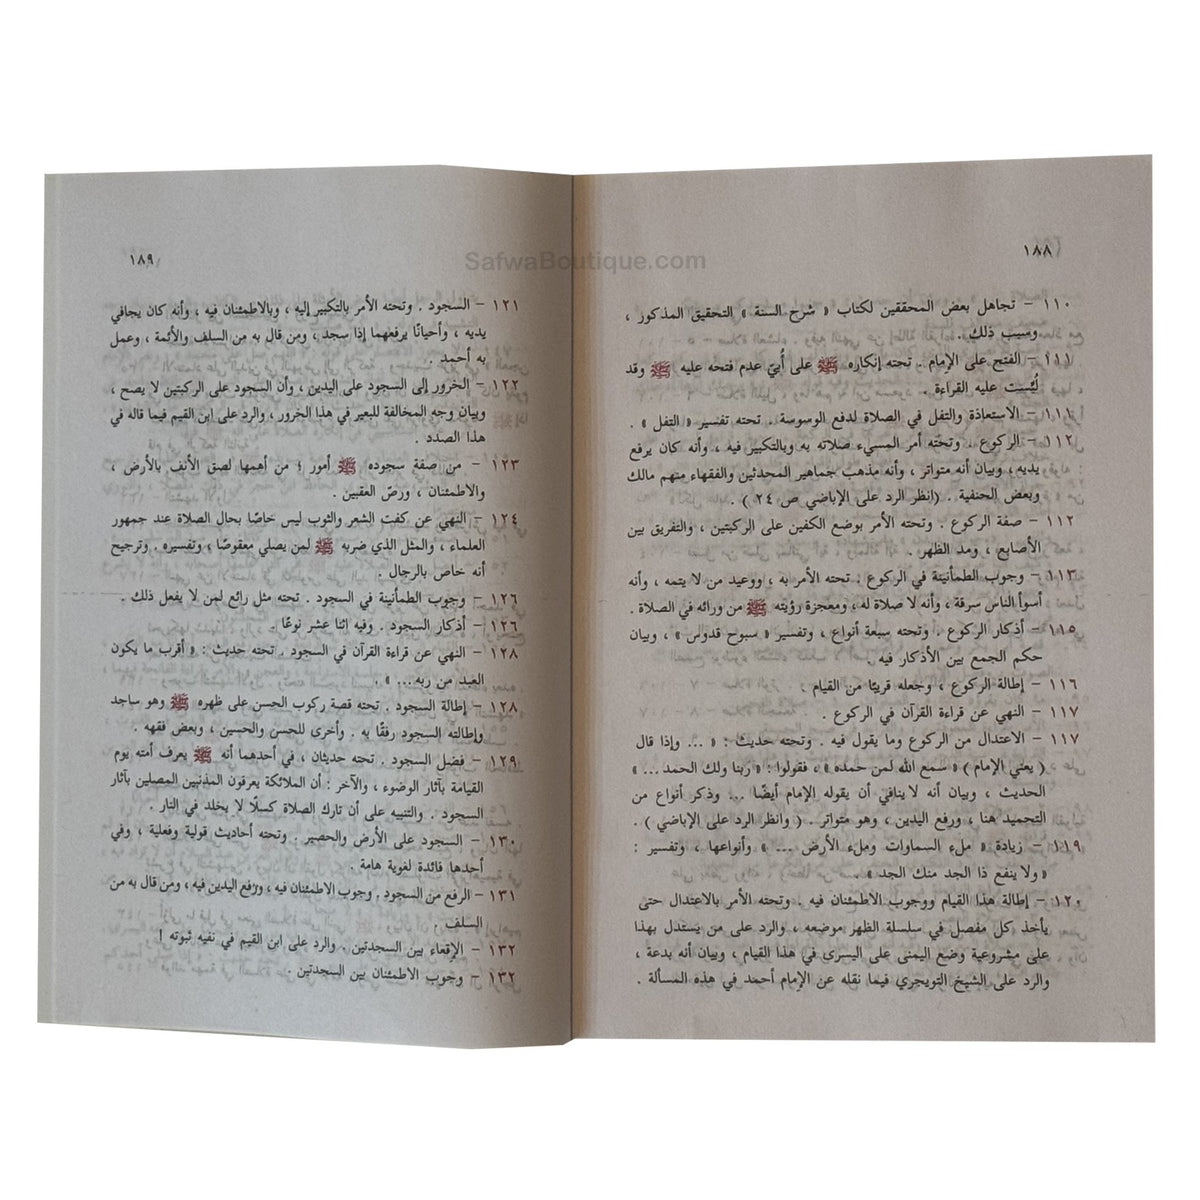 ١٨٨
١١٠ – تجاهل بعض المحققين لكتاب « شرح السنة » التحقيق المذكور ،
وسبب ذلك .
١١١ – الفتح على الإمام . تحته إنكاره ﷺ على أُبيّ عدم فتحه عليه ﷺ وقد
لُبِّست عليه القراءة .
١١١ – الاستعاذة والتفل في الصلاة لدفع الوسوسة . تحته تفسير « التفل » .
١١٢ – الركوع . وتحته أمر المسيء صلاته به وبالتكبير فيه ، وأنه كان يرفع
يديه ، وبيان أنه متواتر ، وأنه مذهب جماهير المحدثين والفقهاء منهم مالك
وبعض الحنفية . (انظر الرد على الإباضي ص ٢٤ ) .
١١٢ – صفة الركوع . وتحته الأمر بوضع الكفين على الركبتين ، والتفريق بين
الأصابع ، ومد الظهر .
١١٣ – وجوب الطمأنينة في الركوع . تحته الأمر به ، ووعيد من لا يتمه ، وأنه
أسوأ الناس سرقة ، وأنه لا صلاة له ، ومعجزة رؤيته ﷺ من ورائه في الصلاة .
١١٥ – أذكار الركوع . وتحته سبعة أنواع ، وتفسير « سبوح قدوس » ، وبيان
حكم الجمع بين الأذكار فيه .
١١٦ – إطالة الركوع ، وجعله قريبًا من القيام .
١١٧ – النهي عن قراءة القرآن في الركوع .
١١٧ – الاعتدال من الركوع وما يقول فيه . وتحته حديث : « ... وإذا قال
( يعني الإمام ) « سمع الله لمن حمده » ، فقولوا : « ربنا ولك الحمد ... »
الحديث ، وبيان أنه لا ينافي أن يقوله الإمام أيضًا ... وذكر أنواع من
التحميد هنا ، ورفع اليدين ، وهو متواتر . ( وانظر الرد على الإباضي ) .
١١٩ – زيادة « ملء السماوات وملء الأرض ... » وأنواعها ، وتفسير :
« ولا ينفع ذا الجد منك الجد » .
١٢٠ – إطالة هذا القيام ووجوب الاطمئنان فيه . وتحته الأمر بالاعتدال حتى
يأخذ كل مفصل في سلسلة الظهر موضعه ، والرد على من يستدل بهذا
على مشروعية وضع اليمنى على اليسرى في هذا القيام ، وبيان أنه بدعة ،
والرد على الشيخ التويجري فيما نقله عن الإمام أحمد في هذه المسألة .
SafwaBoutique.com
١٨٩
١٢١ – السجود . وتحته الأمر بالتكبير إليه ، وبالاطمئنان فيه ، وأنه كان يجافي
يديه ، وأحيانًا يرفعهما إذا سجد ، ومن قال به من السلف والأئمة ، وعمل
به أحمد .
١٢٢ – الخرور إلى السجود على اليدين ، وأن السجود على الركبتين لا يصح ،
وبيان وجه المخالفة للبعير في هذا الخرور ، والرد على ابن القيم فيما قاله في
هذا الصدد .
١٢٣ – من صفة سجوده ﷺ أمور ؛ من أهمها لصق الأنف بالأرض ،
والاطمئنان ، ورصّ العقبين .
١٢٤ – النهي عن كفت الشعر والثوب ليس خاصًا بحال الصلاة عند جمهور
العلماء ، والمثل الذي ضربه ﷺ لمن يصلي معقوصًا ؛ وتفسيره . وترجيح
أنه خاص بالرجال .
١٢٦ – وجوب الطمأنينة في السجود . تحته مثل رائع لمن لا يفعل ذلك .
١٢٦ – أذكار السجود . وفيه اثنا عشر نوعًا .
١٢٨ – النهي عن قراءة القرآن في السجود . تحته حديث : « أقرب ما يكون
العبد من ربه ... » .
١٢٨ – إطالة السجود . تحته قصة ركوب الحسن على ظهره ﷺ وهو ساجد
وإطالته السجود رفقًا به . وأخرى للحسن والحسين ، وبعض فقهه .
١٢٩ – فضل السجود . تحته حديثان ، في أحدهما أنه ﷺ يعرف أمته يوم
القيامة بآثار الوضوء ، والآخر : أن الملائكة يعرفون المذنبين المصلين بآثار
السجود . والتنبيه على أن تارك الصلاة كسلًا لا يخلد في النار .
١٣٠ – السجود على الأرض والحصير . وتحته أحاديث قولية وفعلية ، وفي
أحدها فائدة لغوية هامة .
١٣١ – الرفع من السجود . وجوب الاطمئنان فيه ، ورفع اليدين فيه ، ومن قال به من
السلف .
١٣٢ – الإقعاء بين السجدتين . والرد على ابن القيم في نفيه ثبوته !
١٣٢ – وجوب الاطمئنان بين السجدتين .